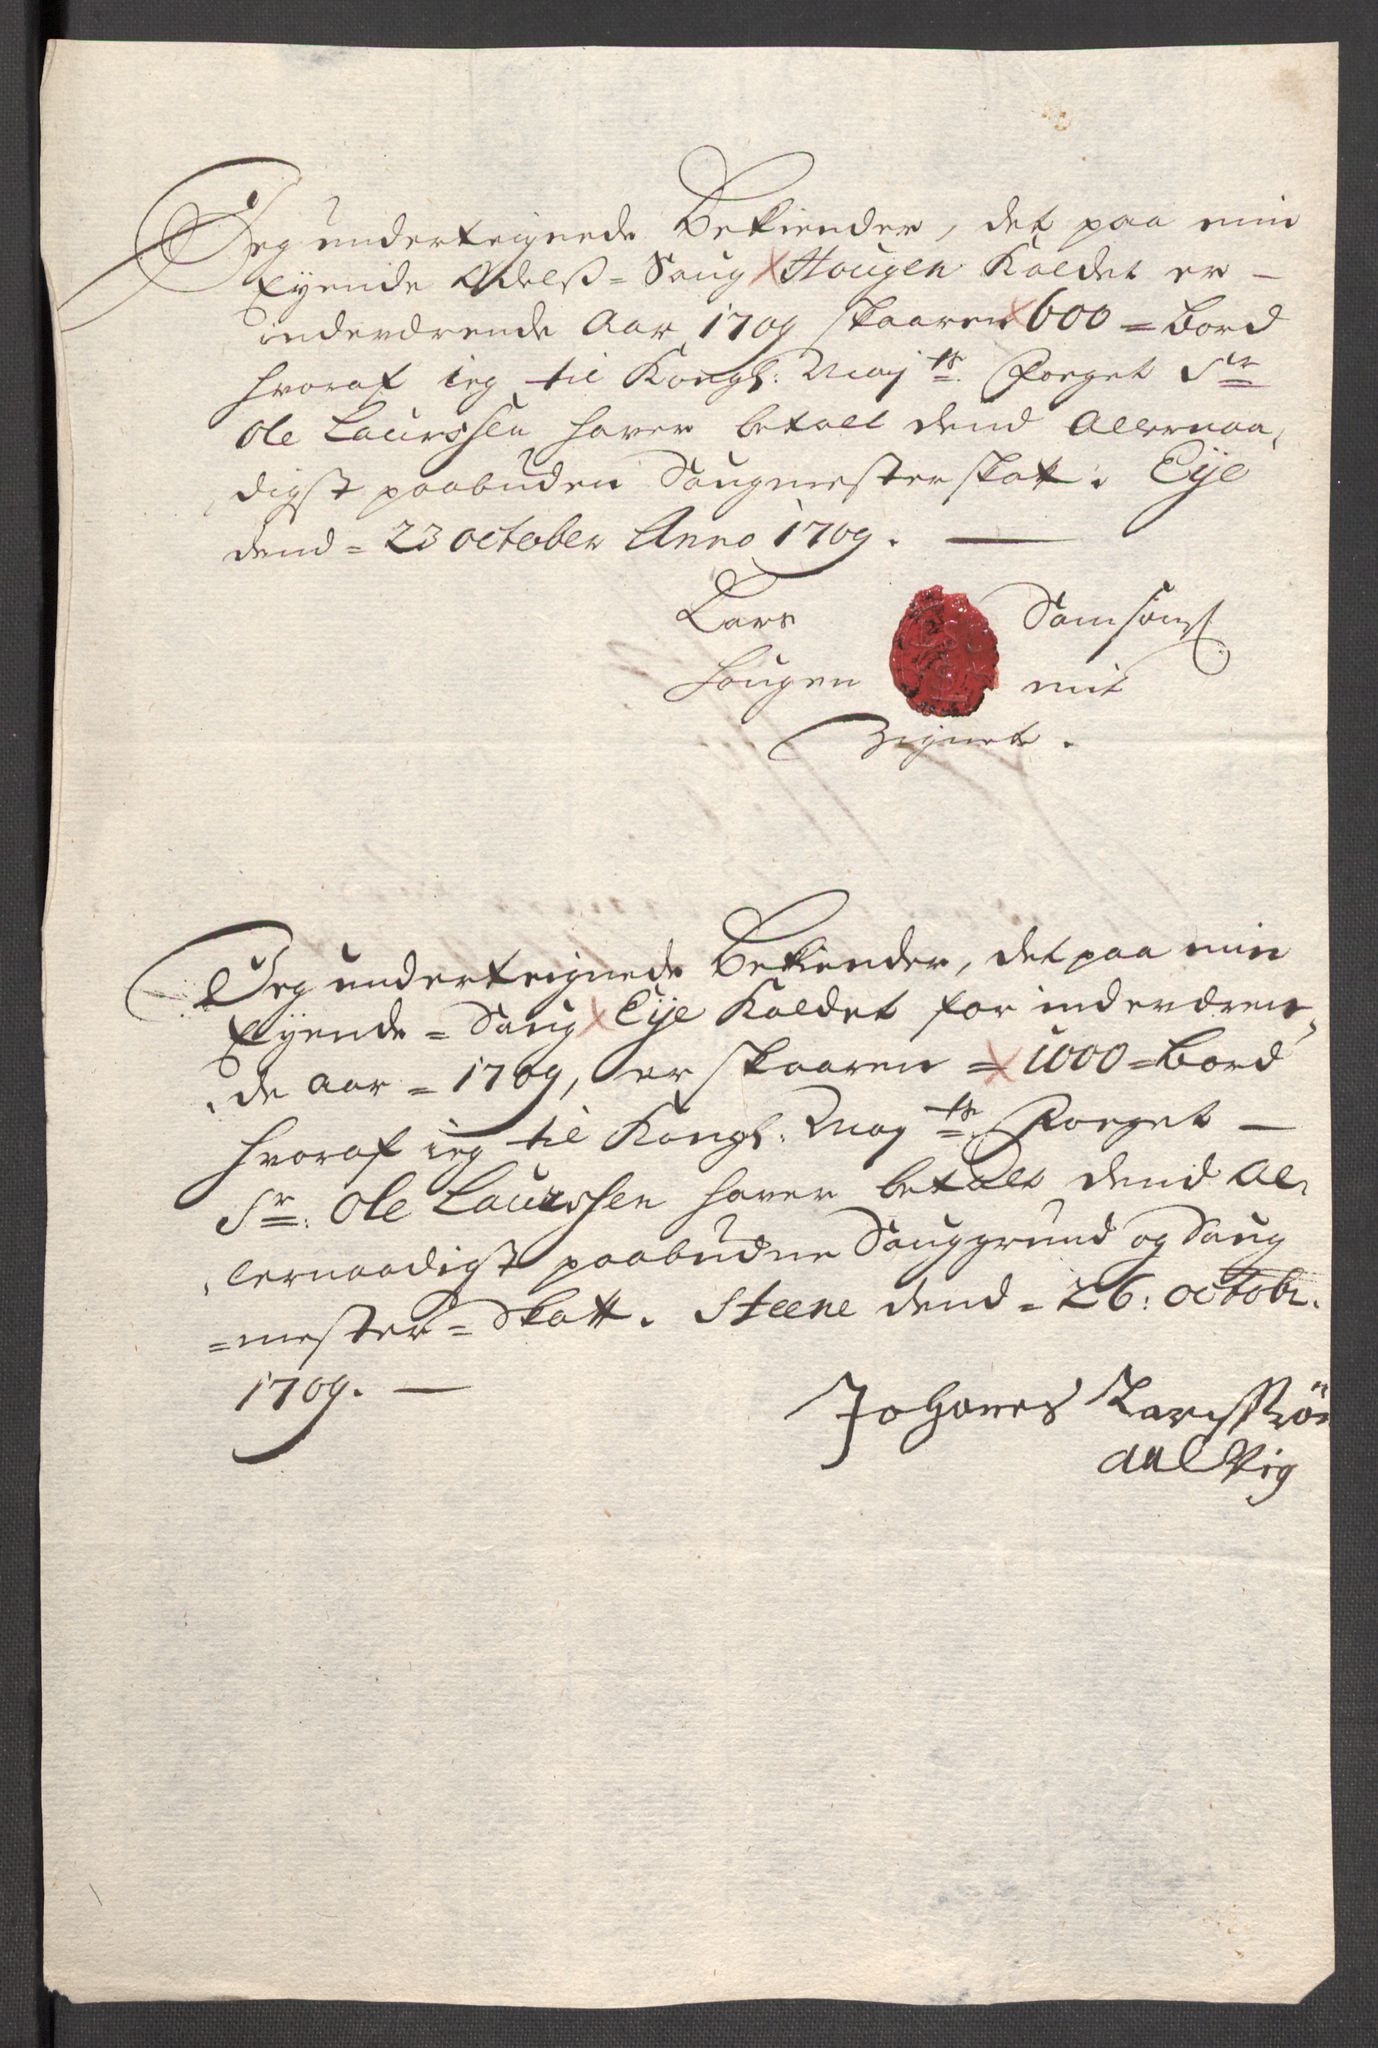 Jeg underteignede Bekiender, det paa min
Eyende Odelß = Saug Hougen Kaldet er –
indeværende Aar 1709 skaaren 600 = Bord
hvoraf ieg til Kongl: Maj.ts Foeget Sr.
Ole Laurssen haver betalt dend Allernaa,
digst paabuden Saugmester skatt. Eije
dend = 23 october Anno 1709. —
Lars Samsons.
Hougen mit
Zignete.
Jeg underteignede Bekiender, det paa min
Eyende = Saug Eije Kaldet for indeværen,
,de aar = 1709, er skaaren = 1000 = Bord
hvoraf ieg til Kongl: Maj.ts Foeget –
Sr: Ole Laurssen haver betalt dend Al,
,lernaadigst paabudne Sauggrund og Saug
=mester = Skatt. Steene dend = 26: octobr.
1709. —
Johanes
aalViig